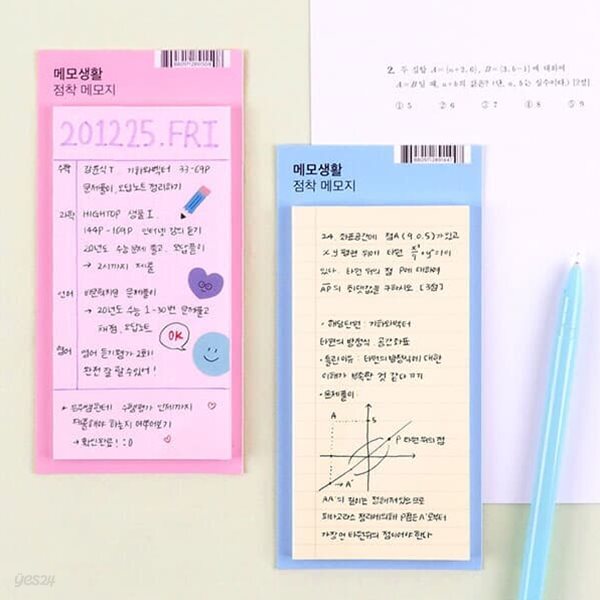 메모생활
점착 메모지
201225.FRI
수학 김윤식T. 기하와벡터 33-69P
문제풀이, 오답노트 정리하기
과학 HIGHTOP 생물 I.
144P-169P 인터넷 강의 듣기
20년도 수능문제 풀고. 오답풀이
→ 2시까지 제출
언어 비문학지문 문제풀이
→ 20년도 수능 1-30번 문제풀고
채점, 오답노트
OK
영어 영어 듣기평가 2회!
완전 잘 할 수 있어!
수행평가 언제까지
제출해야 하는지 여쭈어보기
→ 확인완료! :D
메모생활
점착 메모지
24. 좌표공간에 점A(9,0,5)가 있고
x,y평면 위에 타원 x²/9+y²=1이
있다. 타원 위의 점 P에 대하여
AP의 최댓값을 구하시오 [3점]
• 해당단원 : 기하와벡터
타원의 방정식, 공간좌표
• 틀린이유 : 타원의 방정식에 대한
이해가 부족한 것 같다 ㄱㄱ
• 문제풀이
A
5
P 타원위의 점
A'
AA'의 길이는 정해져있으므로
피타고라스 정리에의해 P점은 A'로부터
가장 먼 타원위의 점이어야 한다
2. 두 집합 A={a+2, 6}, B={3, b-1}에 대하여
A=B일 때, a+b의 값은? (단, a, b는 실수이다.) [2점]
①5 ②6 ③7 ④8 ⑤9
yes24